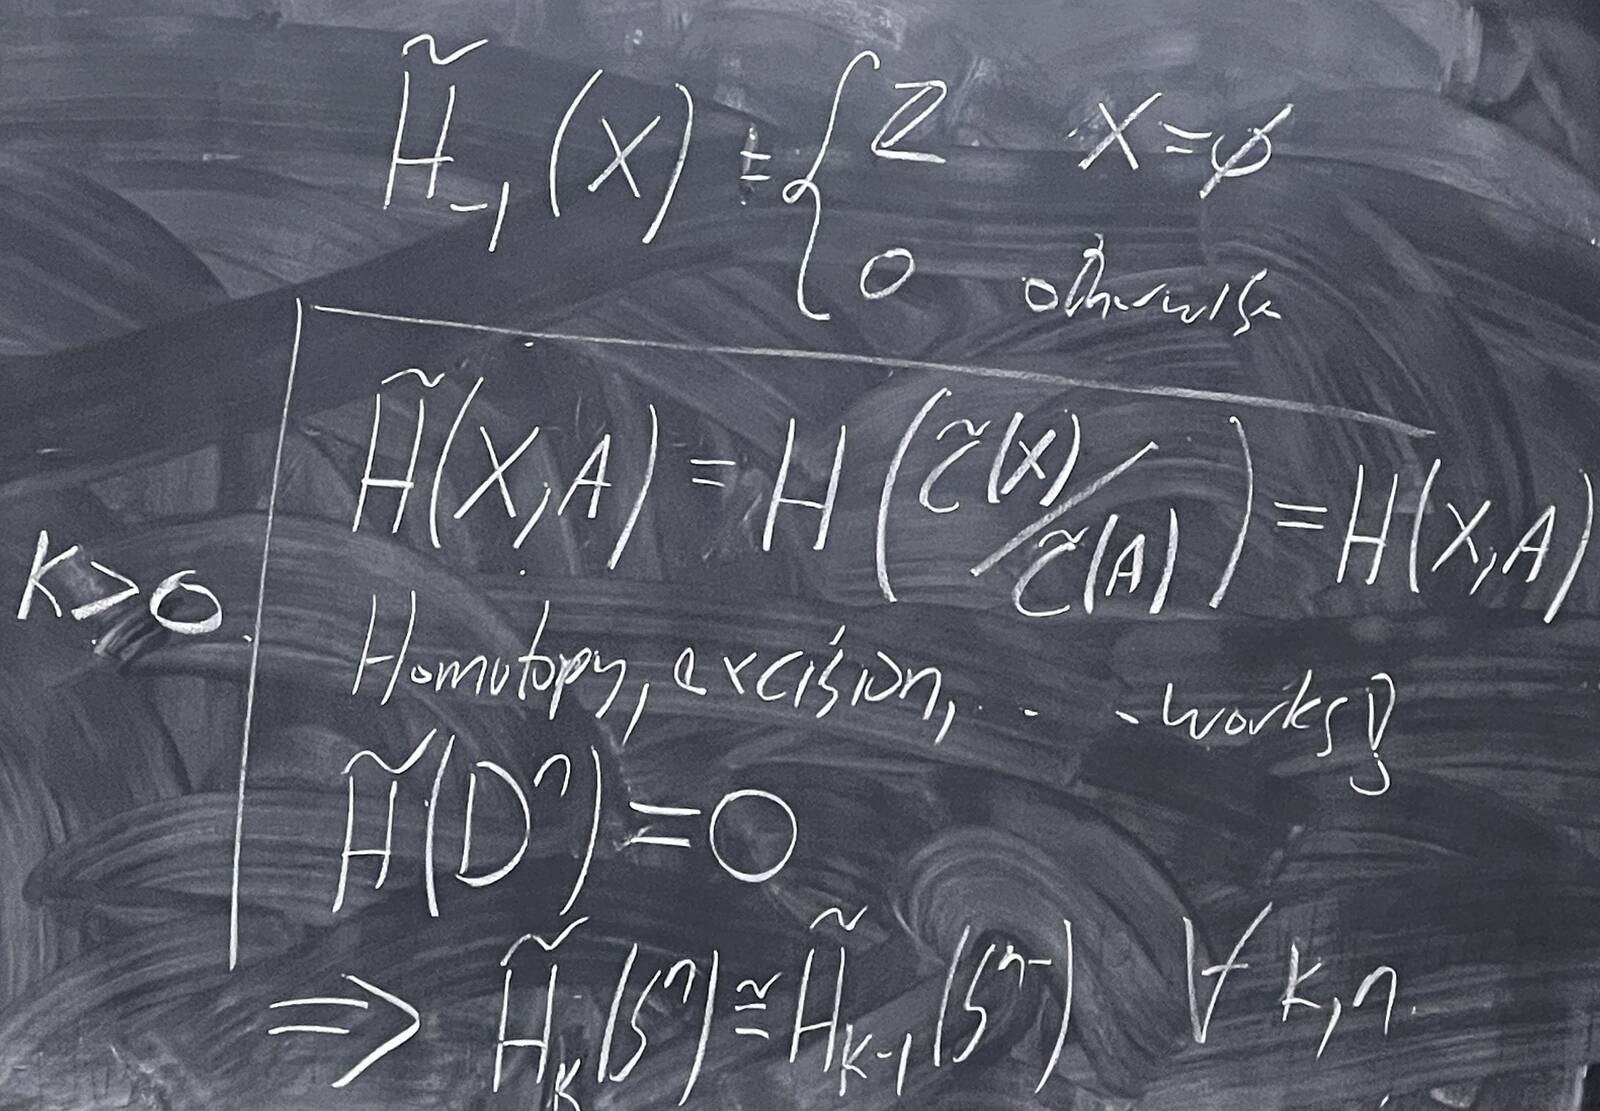 H̃₋₁(X) = { ℤ X=∅
0 otherwise
H̃(X,A) = H(C̃(X)/C̃(A)) = H(X,A)
K>0
Homotopy, excision, . . . works!
H̃(Dⁿ)=0
⇒ H̃ₖ(Sⁿ) ≅ H̃ₖ₋₁(Sⁿ⁻) ∀ k,n.